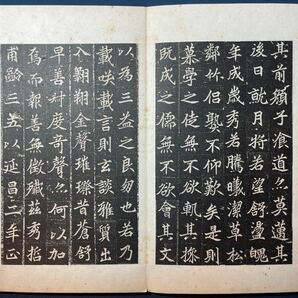 其前顏子飡道亦莫邁其
後日就月將若望舒盪魄
年成歲秀若騰曦潔草松
鄰竹侶孰不仰歎矣是則
慕學之徒無不欲軌其操
既成之儒無不欲會其文
以為三益之良朋也若乃
載咲載言則玄談雅質出
入翱翔金聲璀璨昔蒼舒
早善村度奇聲亦何以加
焉而報善無徵殲茲秀哲
甫齡三五以延昌二年正